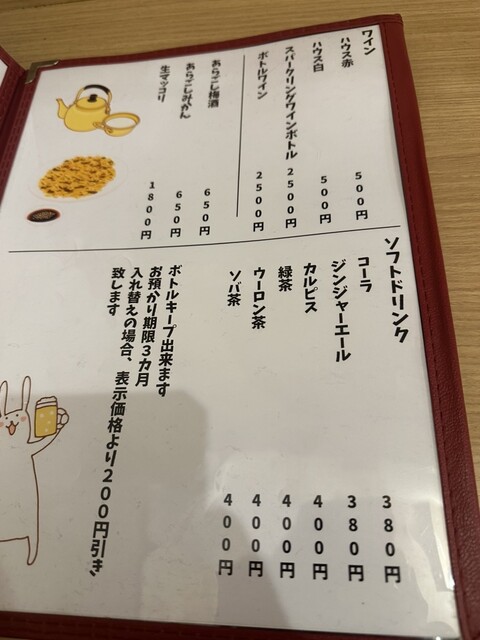 ワイン
ハウス赤 500円
ハウス白 500円
スパークリングワインボトル 2500円
ボトルワイン 2500円
あらごし梅酒 650円
あらごしみかん 650円
生マッコリ 1800円
ソフトドリンク
コーラ 380円
ジンジャーエール 380円
カルピス 400円
緑茶 400円
ウーロン茶 400円
ソバ茶 400円
ボトルキープ出来ます
お預かり期限3カ月
入れ替えの場合、表示価格より200円引き
致します